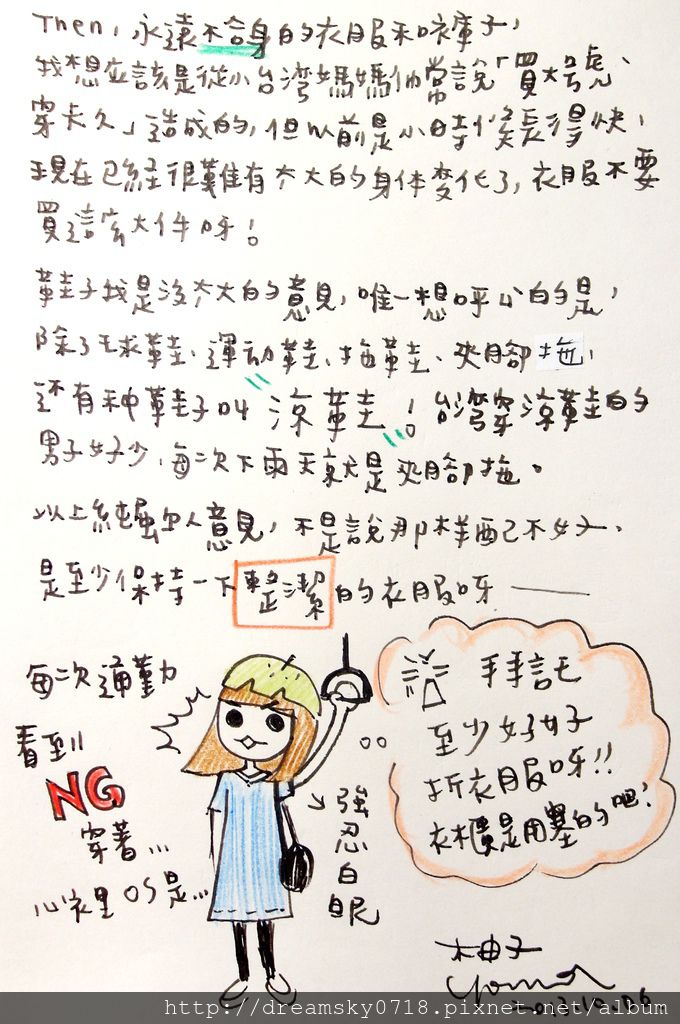 Then, 永遠不合身的衣服和咳庫子,
我想應該是從小台灣媽媽們常說「買大号、
穿卡久」造成的, 但以前是小時候長得快,
現在已經很難有太大的身体変化了, 衣服不要
買這広大件呀!
鞋子我是沒太大的意見, 唯一想呼公的是,
除了球鞋、運动鞋、拖鞋、夾腳拖,
还有种鞋子叫 涼鞋! 台湾穿涼鞋的
男子好少, 每次下雨天就是夾腳拖。
以上純屬個人意見, 不是說那樣配己不好、
是至少保持一下整潔的衣服呀——
每次通勤
看到
NG
穿著...
心裡OS是...
強忍白眼
拜託
至少好好
折衣服呀!!
衣櫃是用塞的吧!
柚子
http://dreamsky0718.pixnet.net/album